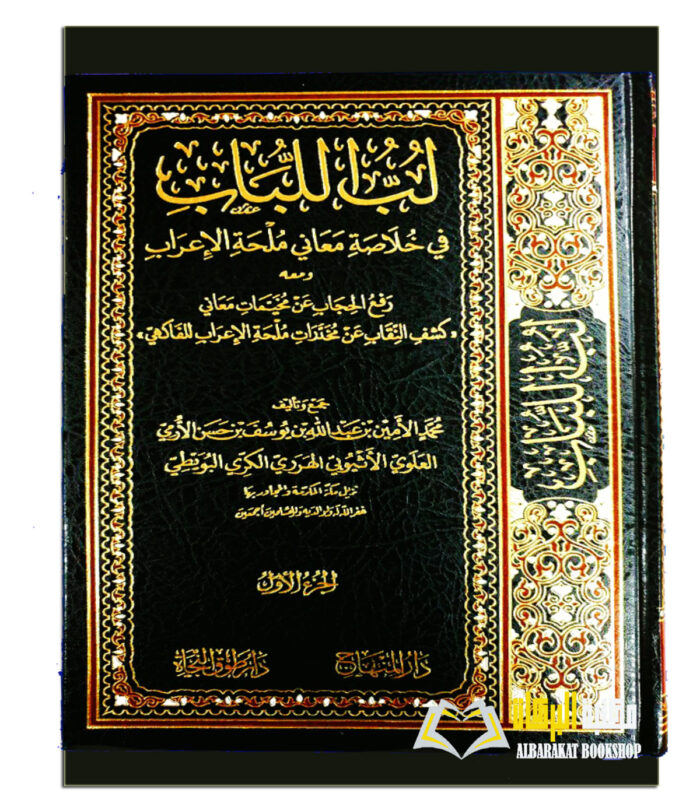 لُبُّ اللُّبَابِ
في خُلَاصَةِ مَعَاني مُلْحَةِ الإِعرَابِ
ومعه
رَفعُ الحِجَابِ عَنْ مُخَيَّمَاتِ مَعَاني
«كَشْفِ النِّقَابِ عَنْ مُخَدَّرَاتِ مُلْحَةِ الإِعرَابِ للفَاكِهيّ»
جمع وتأليف
محمد الأمين بن عبد الله بن يوسف بن حسن الأُرَمي
العَلَوي الأثيوبي الهَرَري الكَرِي البُوَيطي
نزيل مكة المكرمة والمجاور بها
غفر الله له ولوالديه وللمسلمين أجمعين
الجزء الأول
دار المنهاج
دار طوق النجاة
لُبُّ اللُّبَابِ
مكتبة البركات
ALBARAKAT BOOKSHOP